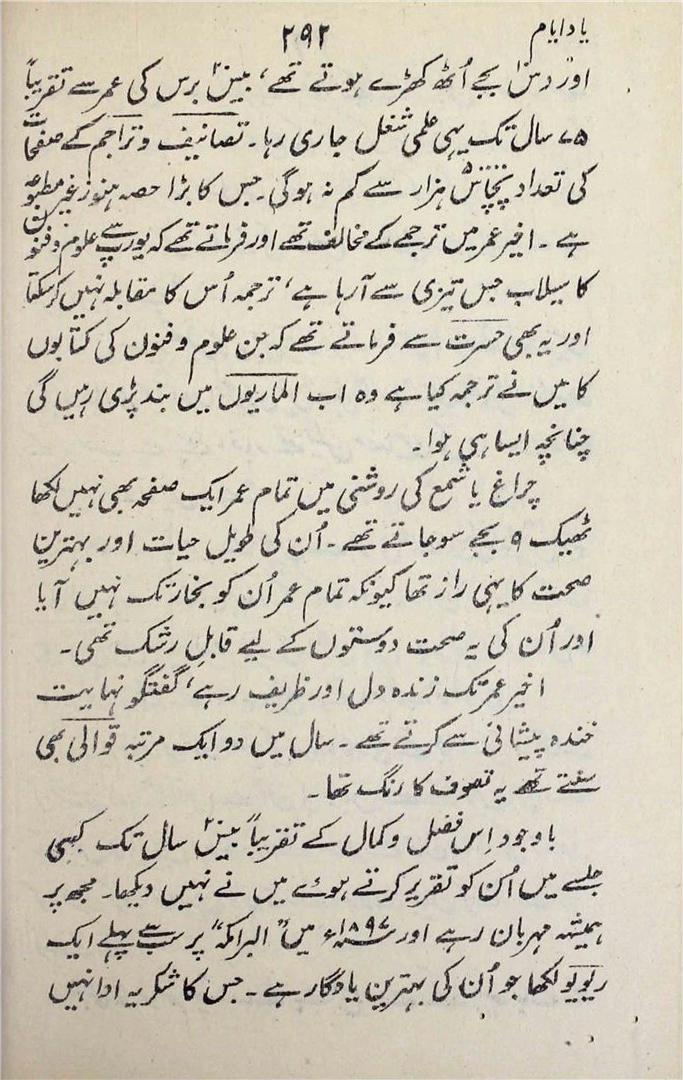 یاد ایام
۲۹۲
اور دس بجے اُٹھ کھڑے ہوتے تھے، بیس برس کی عمر سے تقریباً
۷۵ سال تک یہی علمی شغل جاری رہا۔ تصانیف و تراجم کے صفحات
کی تعداد پچاس ہزار سے کم نہ ہوگی۔ جس کا بڑا حصہ ہنوز غیر مطبوعہ
ہے۔ اخیر عمر میں ترجمے کے مخالف تھے اور فرماتے تھے کہ یورپ سے علوم و فنون
کا سیلاب جس تیزی سے آرہا ہے، ترجمہ اُس کا مقابلہ نہیں کرسکتا
اور یہ بھی حسرت سے فرماتے تھے کہ جن علوم و فنون کی کتابوں
کا میں نے ترجمہ کیا ہے وہ اب الماریوں میں بند پڑی رہیں گی
چنانچہ ایسا ہی ہوا۔
چراغ یا شمع کی روشنی میں تمام عمر ایک صفحہ بھی نہیں لکھا
ٹھیک ۹ بجے سوجاتے تھے۔ اُن کی طویل حیات اور بہترین
صحت کا یہی راز تھا کیونکہ تمام عمر اُن کو بخار تک نہیں آیا
اور اُن کی یہ صحت دوستوں کے لیے قابلِ رشک تھی۔
اخیر عمر تک زندہ دل اور ظریف رہے، گفتگو نہایت
خندہ پیشانی سے کرتے تھے۔ سال میں دو ایک مرتبہ قوالی بھی
سنتے تھے یہ تصوف کا رنگ تھا۔
باوجود اِس فضل و کمال کے تقریباً بیس سال تک کبھی
جلسے میں اُن کو تقریر کرتے ہوئے میں نے نہیں دیکھا۔ مجھ پر
ہمیشہ مہربان رہے اور ۱۸۹۷ء میں "البرامکہ" پر سب سے پہلے ایک
ریویو لکھا جو اُن کی بہترین یادگار ہے۔ جس کا شکریہ ادا نہیں